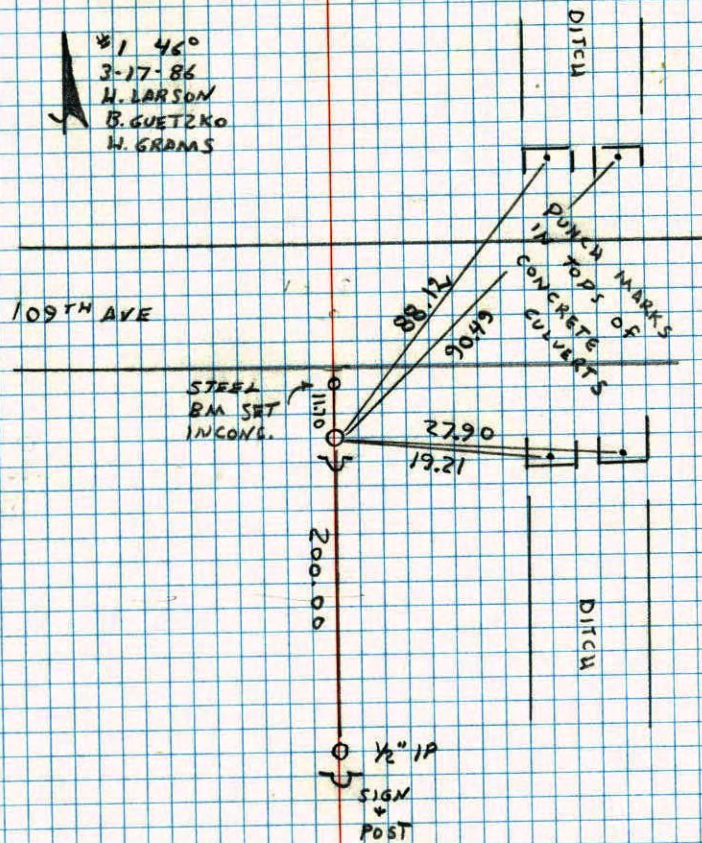 #1 46°
3-17-86
H. LARSON
B. GUETZKO
W. GRAMS
DITCH
PUNCH MARKS
IN TOPS OF
CONCRETE
CULVERTS
88.12
90.49
109TH AVE
STEEL
BM SET
IN CONC.
11.70
27.90
19.21
200.00
DITCH
1/2" IP
SIGN
+
POST